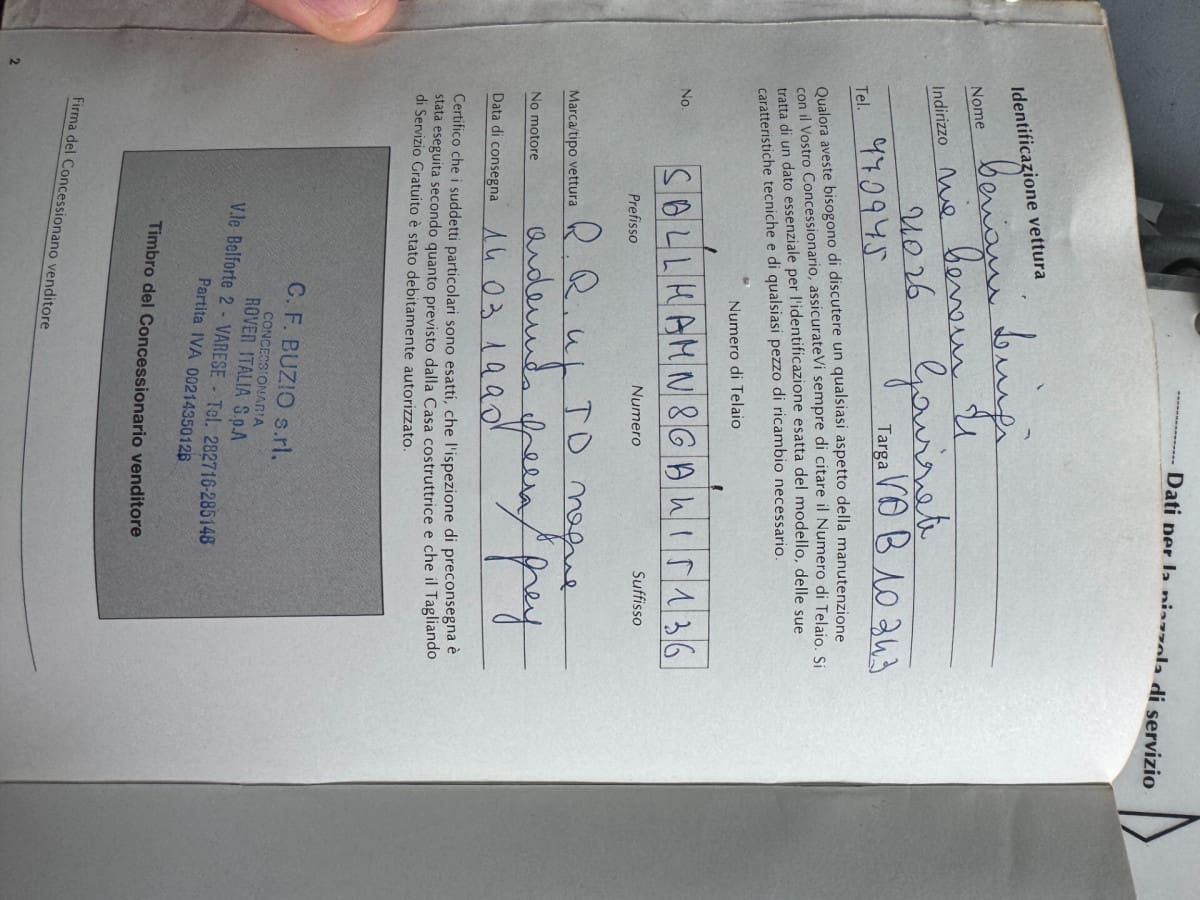 Dati per la piazzola di servizio
Identificazione vettura
Nome Luigi
Indirizzo vie
21026 Gavirate
Tel. 770975 Targa VAB10243
Qualora aveste bisogno di discutere un qualsiasi aspetto della manutenzione
con il Vostro Concessionario, assicurateVi sempre di citare il Numero di Telaio. Si
tratta di un dato essenziale per l'identificazione esatta del modello, delle sue
caratteristiche tecniche e di qualsiasi pezzo di ricambio necessario.
Numero di Telaio
No. SALLHAMN8GA415136
Prefisso Numero Suffisso
Marca/tipo vettura R.R. TD
No motore green/grey
Data di consegna 14 03 1990
Certifico che i suddetti particolari sono esatti, che l'ispezione di preconsegna è
stata eseguita secondo quanto previsto dalla Casa costruttrice e che il Tagliando
di Servizio Gratuito è stato debitamente autorizzato.
C. F. BUZIO s.r.l.
CONCESSIONARIA
ROVER ITALIA S.p.A
V.le Belforte 2 - VARESE - Tel. 282716-285148
Partita IVA 00214350126
Timbro del Concessionario venditore
Firma del Concessionano venditore
2